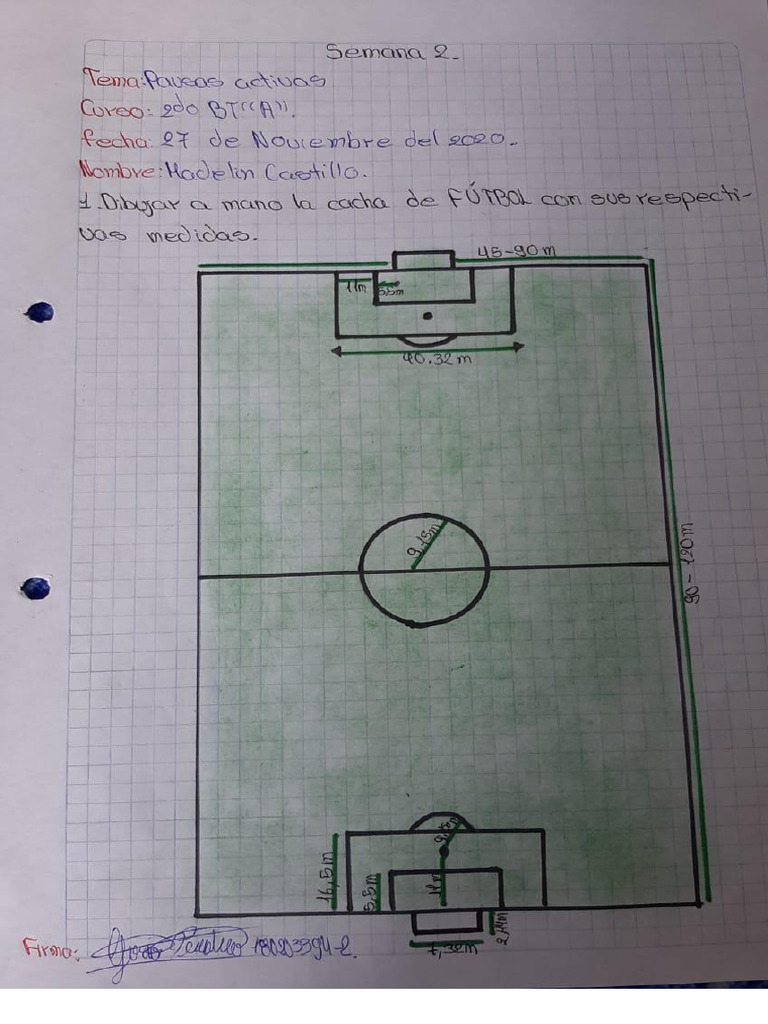 Semana 2.
Tema: Pausas activas
Curso: 2do BT "A".
fecha: 27 de Noviembre del 2020.
Nombre: Madelin Castillo.
1. Dibujar a mano la cacha de FÚTBOL con sus respecti-
vas medidas.
45-90m
11m 5,5m
40.32m
9,15m
90-120m
9,15m
16,5m 5,5m 11m
7,32m 2,44m
Firma: 180203394-2.